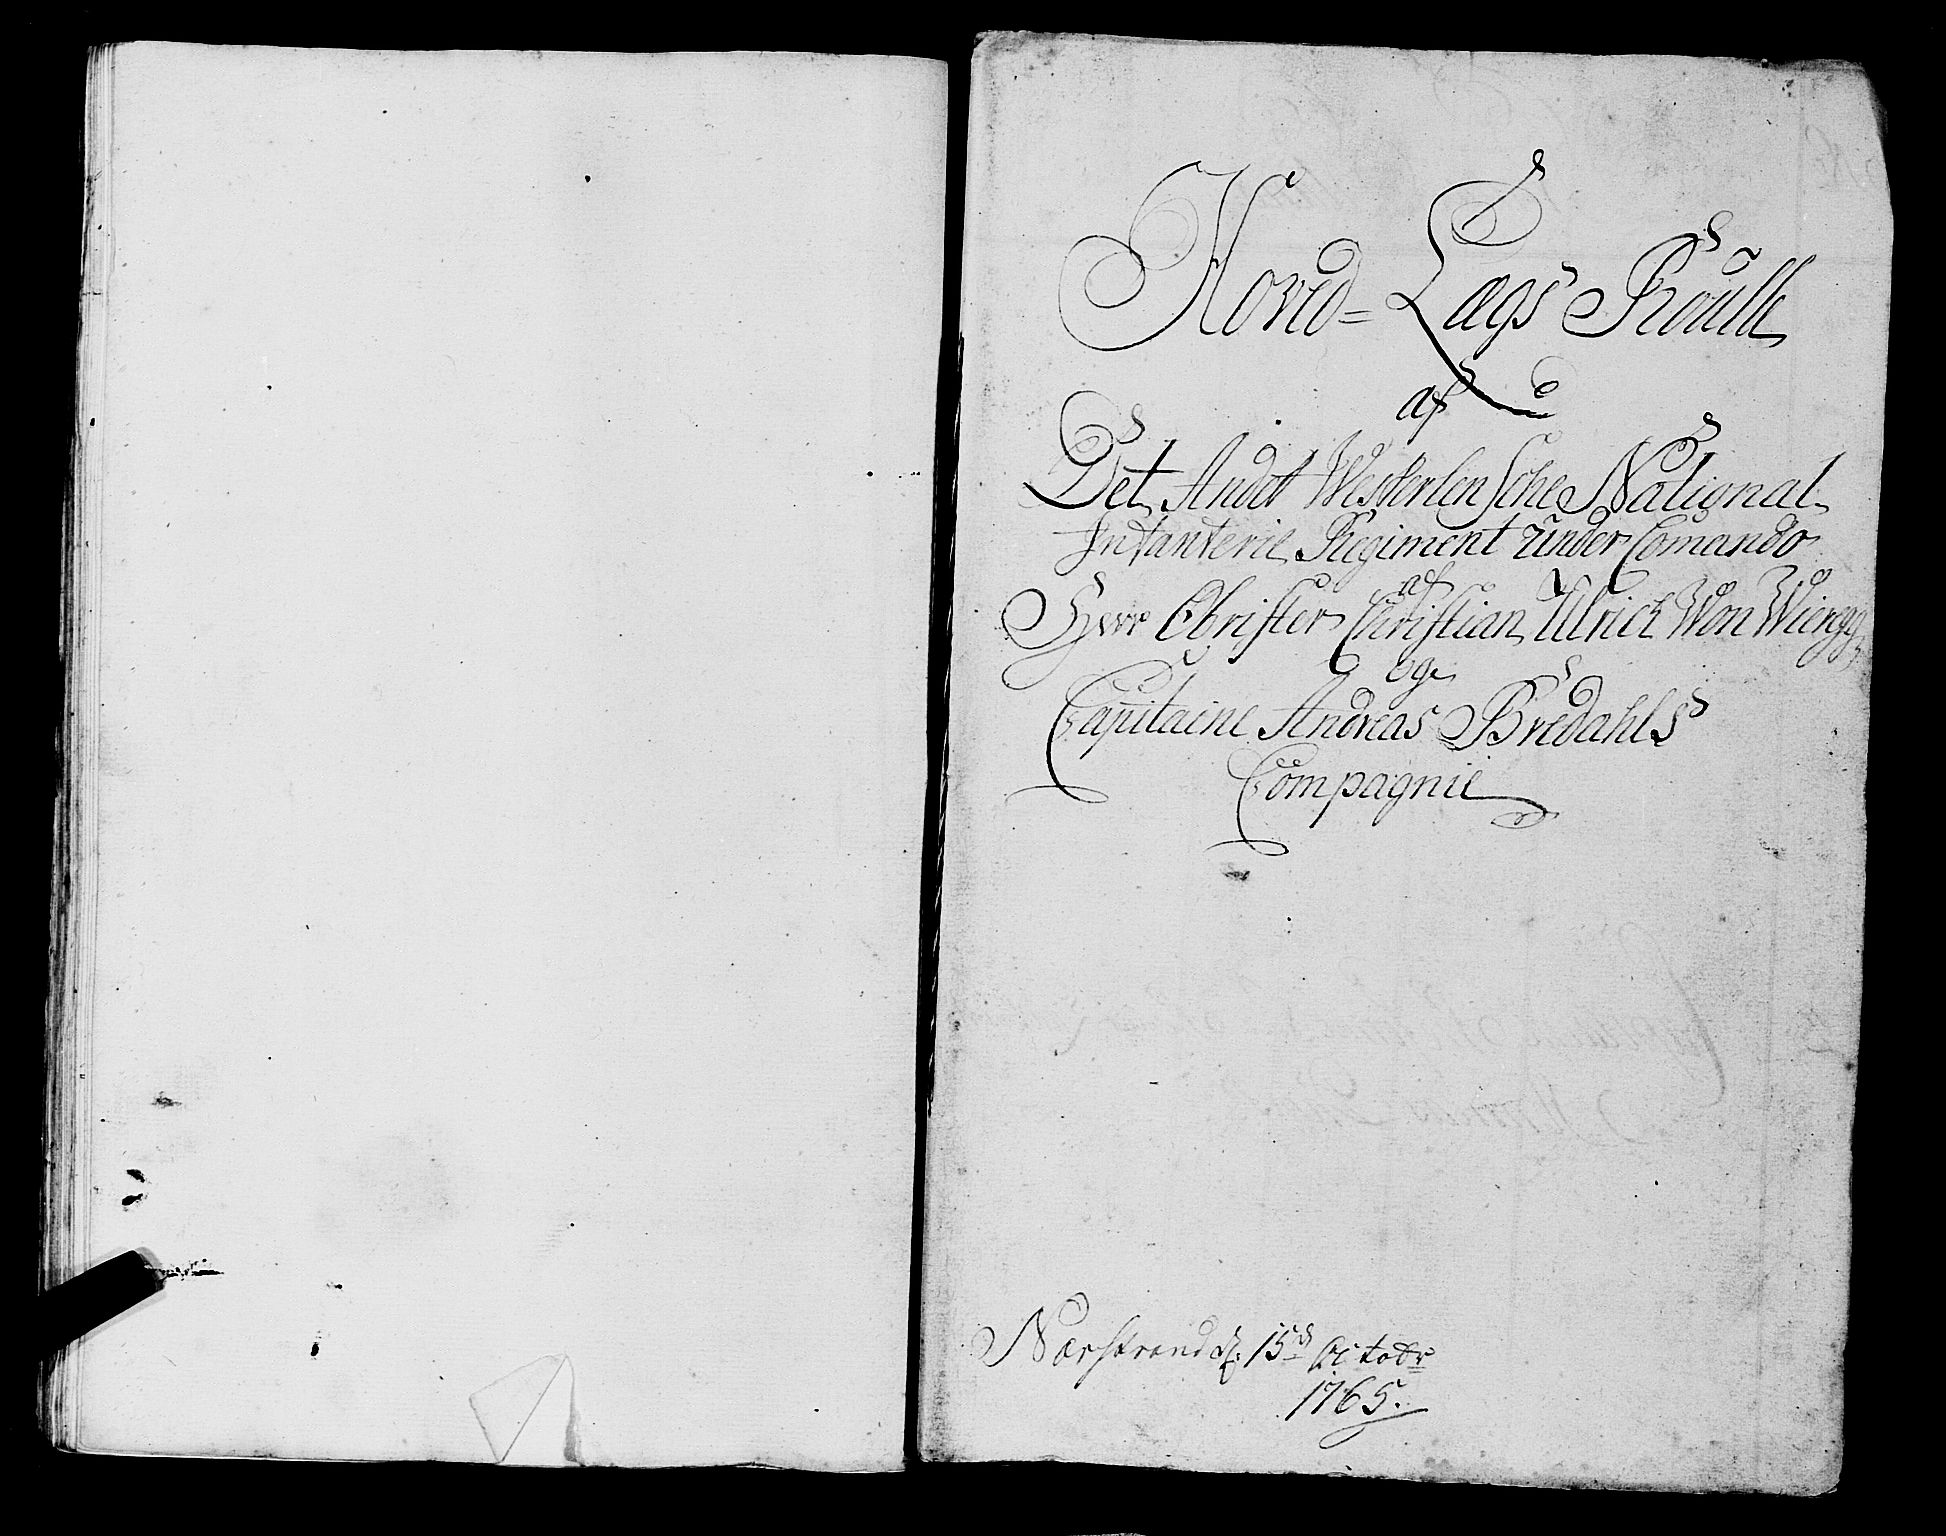 Hoved= Lægs Roulle
af
Det Andet Westerlensche National
Infanterie Regiment under Comando
af
Herr Obrister Christian Ulrich Von Wieregg
og
Capitaine Andreas Bredahls
Compagnie
Nærstrand d. 15de Octobr
1765.